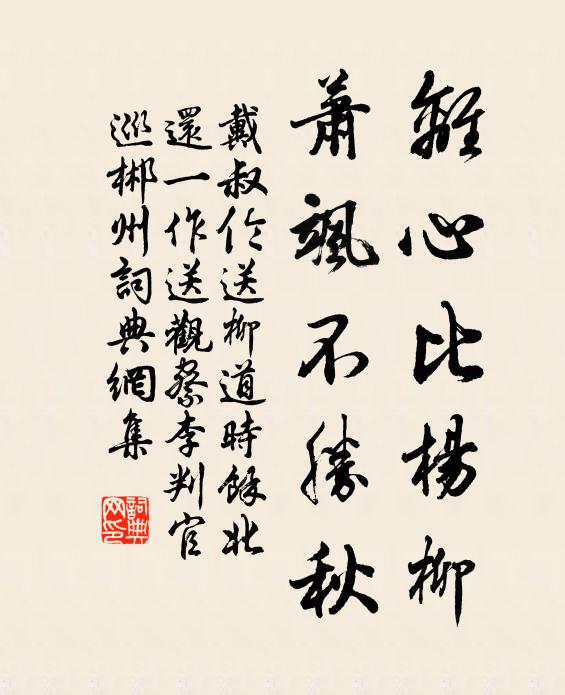 離心比楊柳
蕭颯不勝秋
戴叔倫送柳道時餘北
還一作送觀察李判官
巡郴州詞典網集
詞典網印